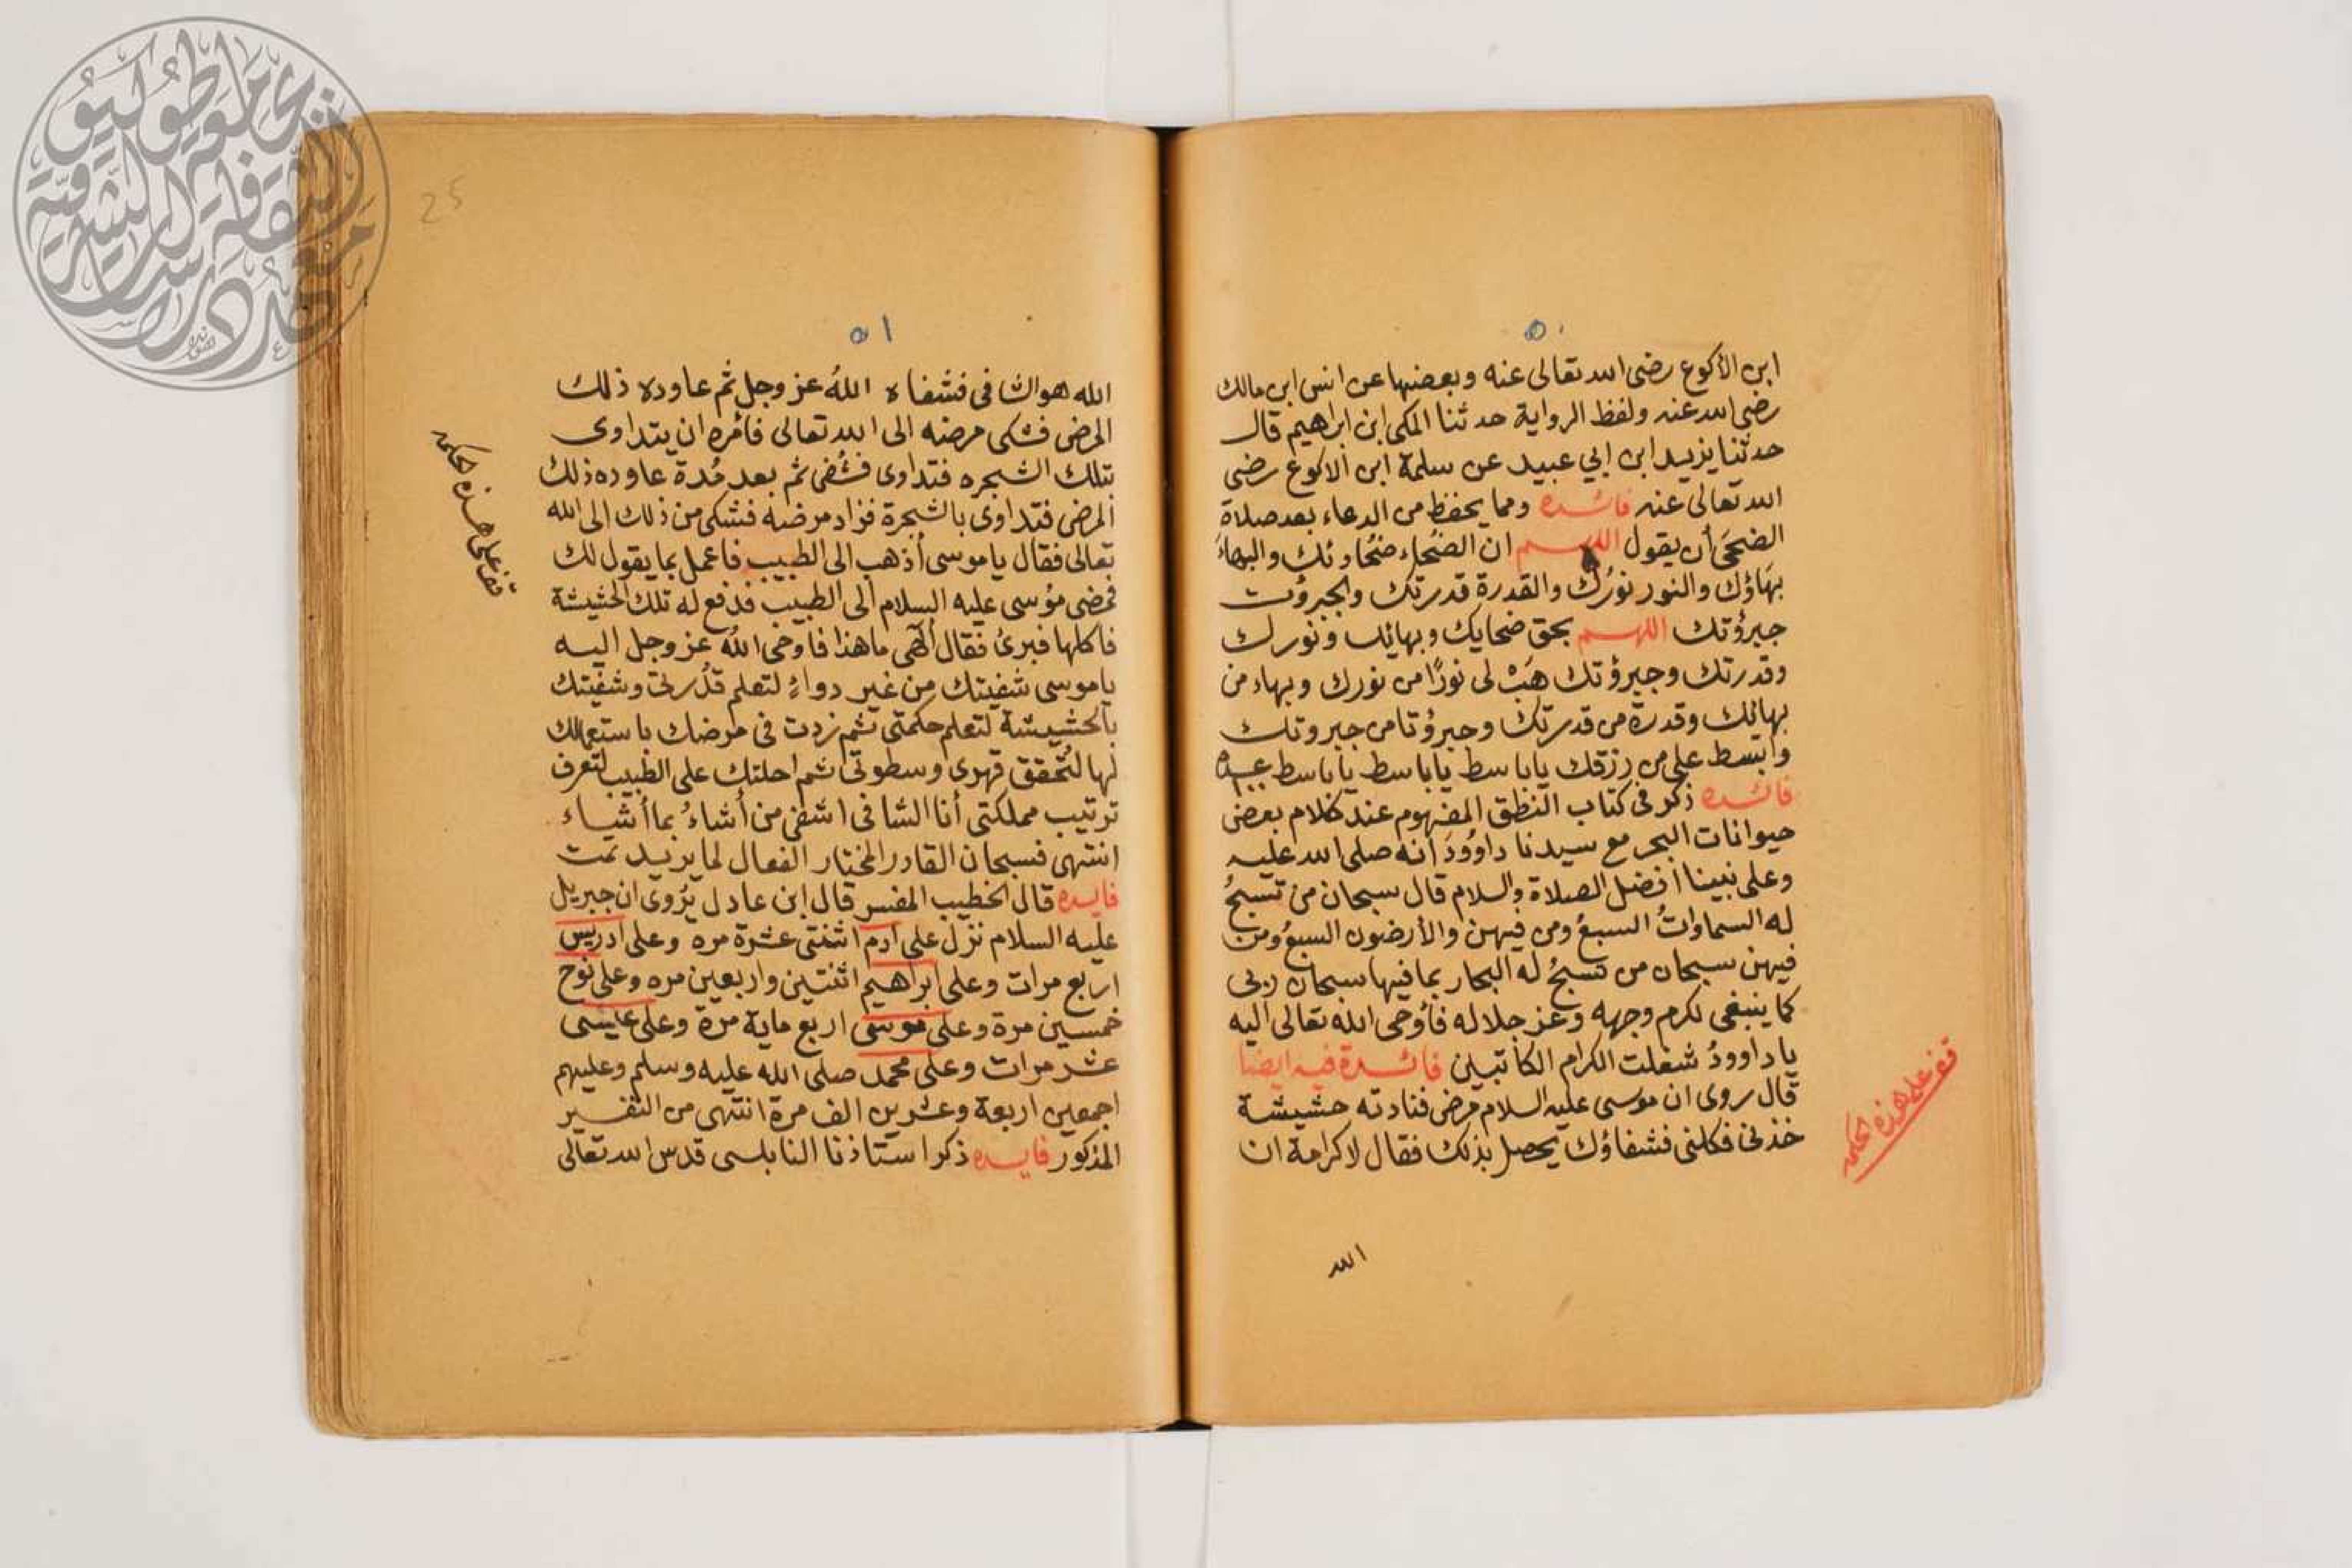 ٥٠
ابن الأكوع رضى الله تعالى عنه وبعضها عن انس ابن مالك
رضى الله عنه ولفظ الرواية حدثنا المكى ابن ابراهيم قال
حدثنا يزيد ابن ابي عبيد عن سلمة ابن الاكوع رضى
الله تعالى عنه فائده ومما يحفظ من الدعاء بعد صلاة
الضحَى أن يقول اللهم ان الضُحاء ضُحاوئك والبهاءَ
بهَاؤك والنور نورُك والقدرة قدرتك والجبروُت
جبروُتك اللهم بحق ضحايك وبهائك ونورك
وقدرتك وجبروُتك هَبْ لى نورًا من نورك وبهاء من
بهائك وقدرة من قدرتك وجبروُتا من جبروتك
وابسط علي من رزقك ياباسط ياباسط ياباسط
فائده ذكر فى كتاب النطق المفهوم عند كلام بعض
حيوانات البحر مع سيدنا داوُودَ انه صلى الله عليه
وعلى نبينا افضل الصلاة والسلام قال سبحان من تسبحُ
له السماواتُ السبعُ ومن فيهن والأرضون السبعُ ومن
فيهن سبحان من تسبحُ له البحار بما فيها سبحان ربى
كما ينبغى لكرم وجهه وعز جلاله فأوحى الله تعالى اليه
يا داوودُ شغلت الكرام الكاتبين فائدة فيه ايضا
قال روى ان موسى عليه السلام مرض فنادته حشيشة
خذنى فكلنى فشفاؤك يحصل بذلك فقال لا كرامة ان
الله
قف على هذه الحكمه
٥١
الله هو الشافى فشفاه اللهُ عز وجل ثم عاوده ذلك
المرض فشكى مرضه الى الله تعالى فأمره ان يتداوى
بتلك الشجره فتداوى فشُفى ثم بعد مُدة عاوده ذلك
المرض فتداوى بالشجرة فزاد مرضه فشكى من ذلك الى الله
تعالى فقال ياموسى أذهب الى الطبيب فاعمل بما يقول لك
فمضى موُسى عليه السلام الى الطبيب فدفع له تلك الحشيشة
فاكلها فبرئ فقال الٓهى ما هذا فاوحى اللهُ عز وجل اليه
ياموسى شفيتك من غير دواءٍ لتعلم قدُرتى وشفيتك
بالحشيشة لتعلم حكمتى ثم زدت فى مرضك باستعمالك
لها لتُحقق قهرى وسطوتى ثم احلتك على الطبيب لتعرف
ترتيب مملكتى أنا الشافى اشفى من أشاءُ بما أشياء
انتهى فسبحان القادر المختار الفعال لما يريد تمت
فايده قال الخطيب المفسر قال ابن عادل يُروى ان جبريل
عليه السلام نزل على ادم اثنتى عشرة مره وعلى ادريس
اربع مرات وعلى ابراهيم اثنتين واربعين مره وعلى نوح
خمسين مرة وعلى موسى اربع ماية مرة وعلى عايسى
عشر مرات وعلى محمد صلى الله عليه وسلم وعليهم
اجمعين اربعة وعشرين الف مرة انتهى من التفسير
المذكور فايده ذكر استاذنا النابلسى قدس الله تعالى
قف على هذه الحكمه
25